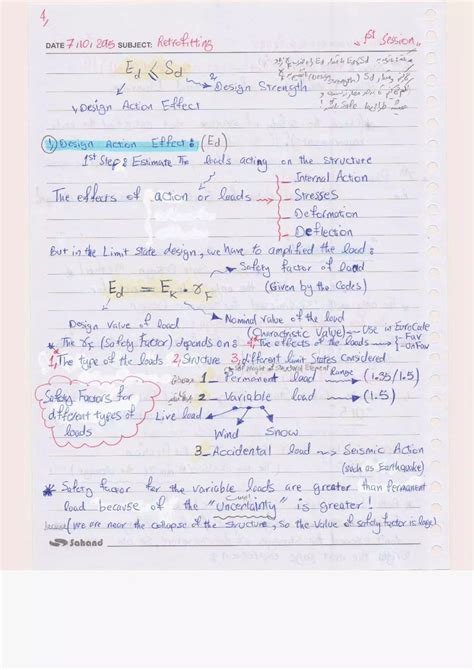 4
DATE 7,10,2015 SUBJECT: Retrofitting "1st Session"
Ed ⩽ Sd
Design Strength
Design Action Effect
1) Design Action Effect: (Ed)
1st Step: Estimate the loads acting on the structure
Internal Action
The effects of action or loads Stresses
Deformation
Deflection
But in the Limit State design, we have to amplified the load:
Safety factor of load
Ed = Ek · γF (Given by the Codes)
Nominal value of the load
Design value of load (Charactristic Value) Use in EuroCode
* The γF (Safety Factor) depends on: 4, The effects of the loads Fav
UnFav
1, The type of the loads 2, Structure 3, different limit States Considered
Range
1_ Permanent load (1.35/1.5)
Safety Factors for
different types of
loads
2_ Variable load (1.5)
Live load
Wind Snow
3_ Accidental load Seismic Action
(such as Earthquake)
* Safety factor for the variable loads are greater than permanent
load because of the "Uncertainty" is greater!
(We are near the collapse of the structure, so the value of safety factor is large)
Sahand